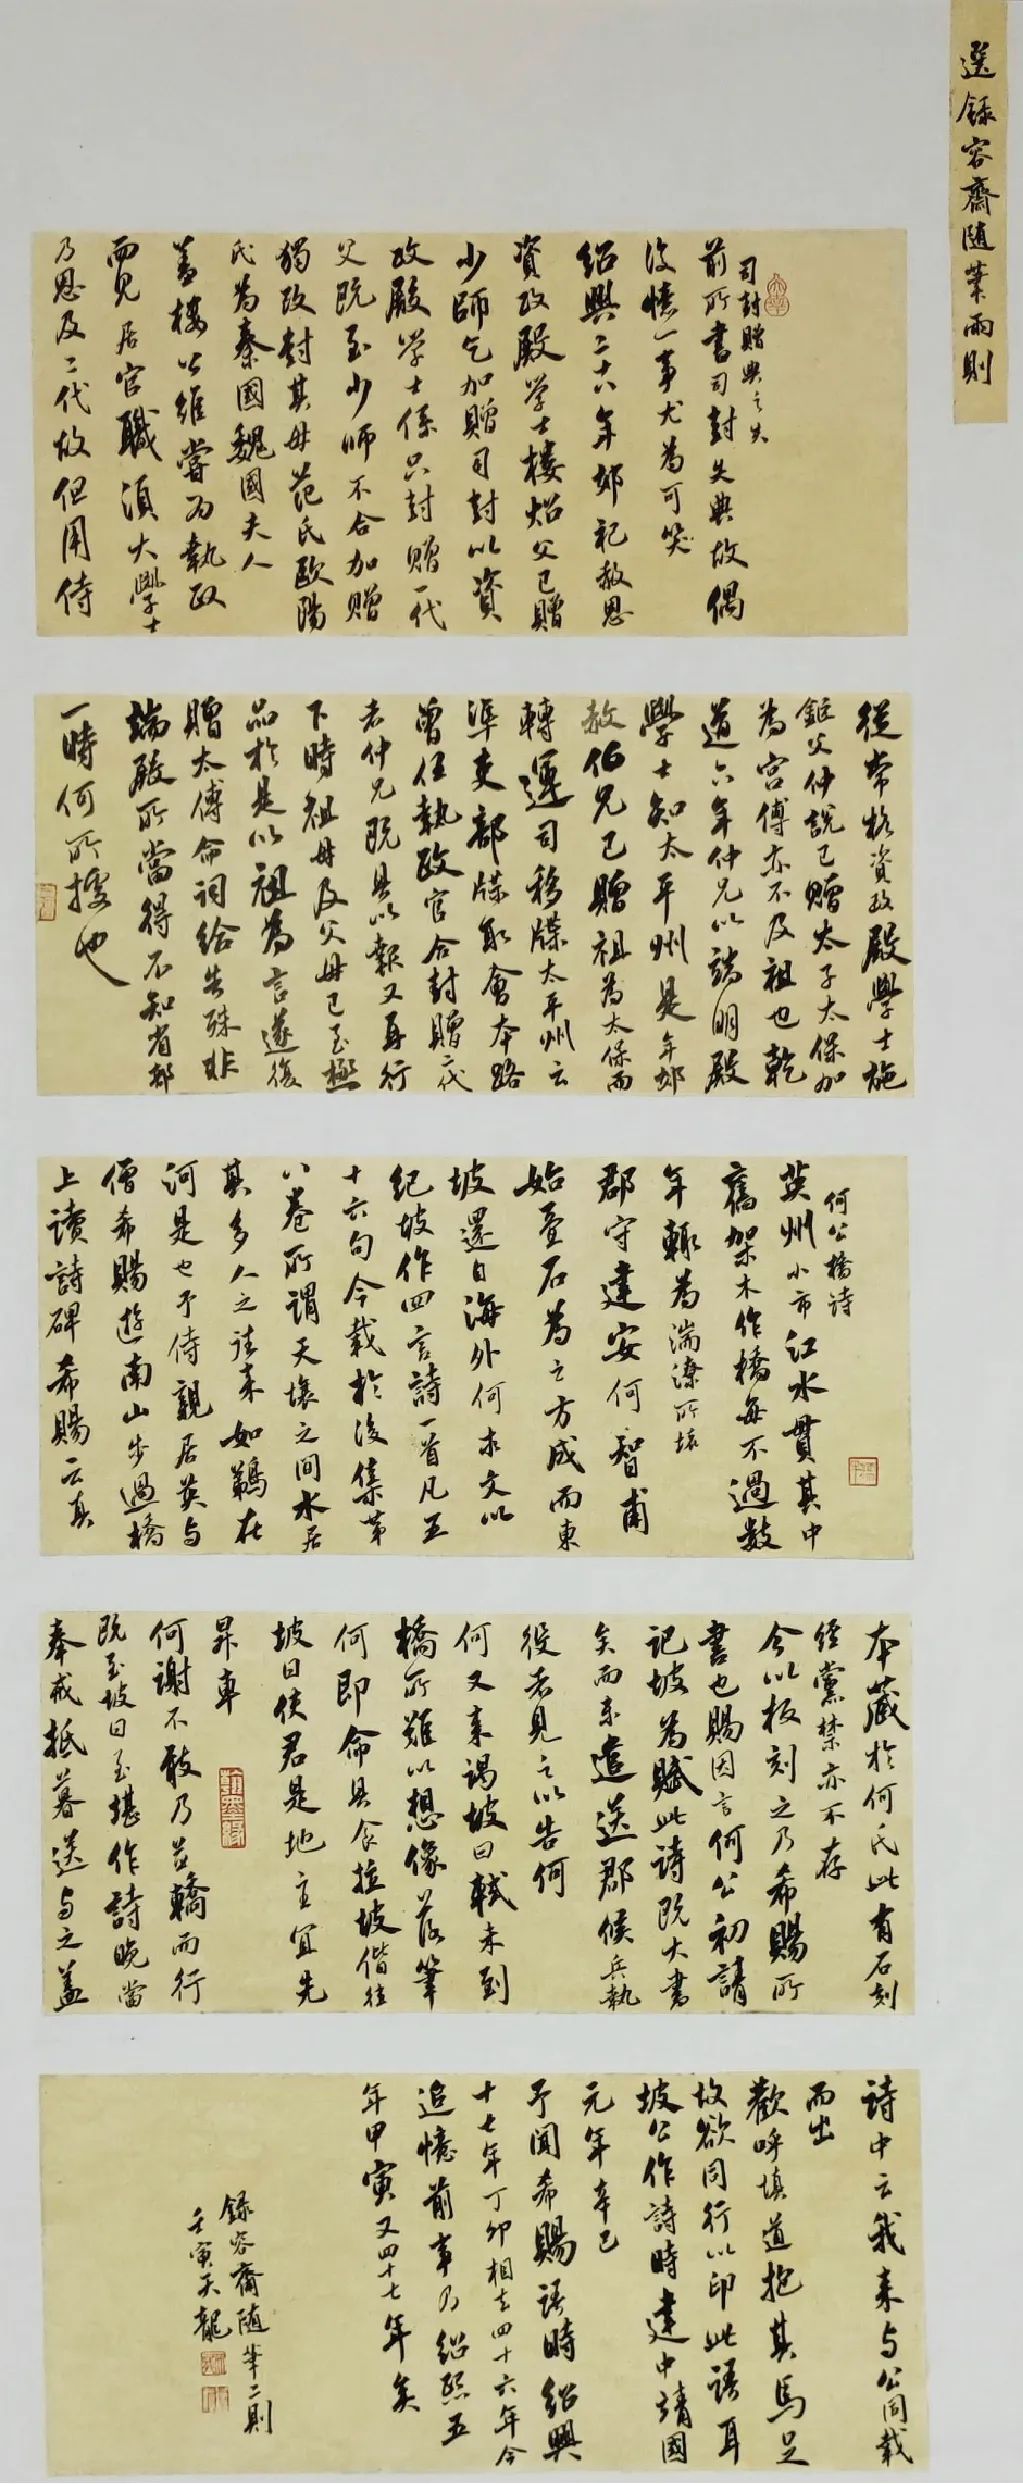 選錄容齋隨筆兩則
司封贈典之失
前所書司封失典故偶
後憶一事尤為可笑
紹興二十八年郊祀赦恩
資政殿学士樓炤父已贈
少師乞加贈司封以資
政殿学士係只封贈一代
父既至少师不合加贈
獨改封其母范氏歐陽
氏為秦國魏國夫人
蓋樓公雖嘗为執政
而見居官職須大學士
乃恩及二代故但用侍
從常格資政殿學士施
鉅父仲說已贈太子太保加
為宮傅亦不及祖也乾
道六年仲兄以端明殿
學士知太平州是年郊
赦伯兄已贈祖為太保而
轉運司移牒太平州云
準吏部牒取會本路
曾任執政官合封贈二代
者仲兄既具以報又再行
下時祖母及父母已至極
品於是以祖為言遂復
贈太傅命詞給告殊非
端殿所當得不知省部
一時何所據也
何公橋诗
英州小市江水貫其中
舊架木作橋每不過數
年輒為湍潦所壞
郡守建安何智甫
始疊石為之方成而東
坡還自海外何求文以
紀坡作四言詩一首凡五
十六句今載於後集第
八卷所謂天壤之間水居
其多人之往来如鵜在
河是也予侍親居英与
僧希賜遊南山步過橋
上讀詩碑希賜云真
本藏於何氏此有石刻
經黨禁亦不存
今以板刻之乃希賜所
書也賜因言何公初請
記坡為賦此詩既大書
矣而未遣送郡候兵執
役者見之以告何
何又来謁坡曰軾未到
橋所難以想像落筆
何即命具食拉坡偕往
坡曰使君是地主宜先
昇車
何謝不敢乃並轎而行
既至坡曰正堪作詩晚當
奉戒抵暮送与之蓋
詩中云我来与公同载
而出
歡呼填道抱其馬足
故欲同行以印此語耳
坡公作詩時建中靖國
元年辛巳
予聞希賜語時紹興
十七年丁卯相去四十六年今
追憶前事乃紹熙五
年甲寅又四十七年矣
錄容齋随筆二則
壬寅天龍